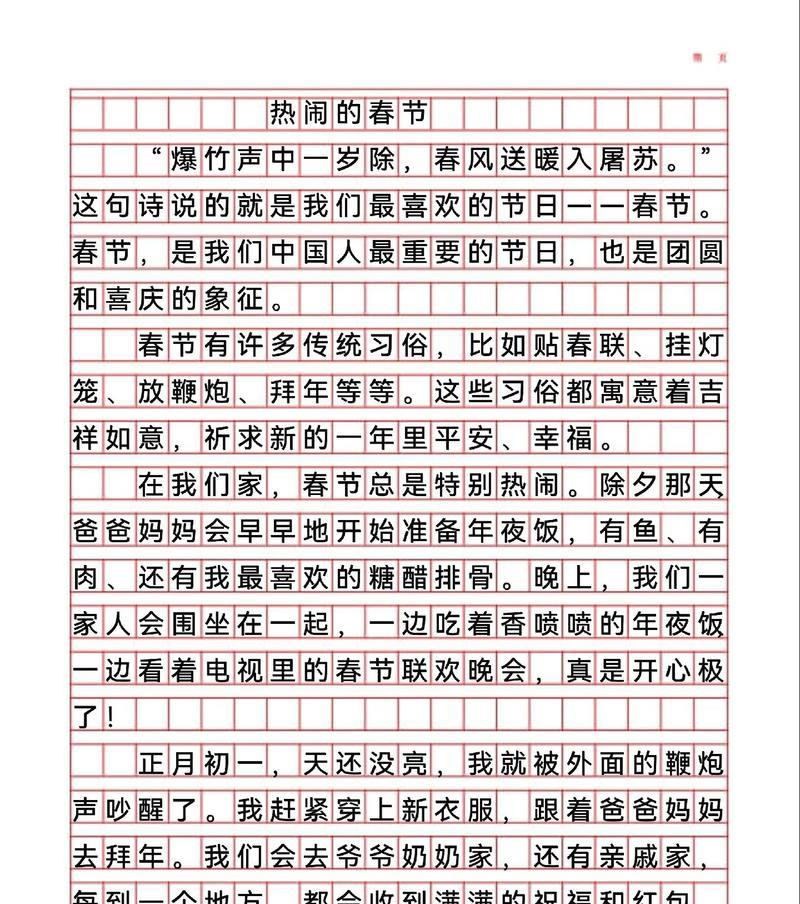 第 页
热闹的春节
“爆竹声中一岁除，春风送暖入屠苏。”
这句诗说的就是我们最喜欢的节日一一春节。
春节，是我们中国人最重要的节日，也是团圆
和喜庆的象征。
春节有许多传统习俗，比如贴春联、挂灯
笼、放鞭炮、拜年等等。这些习俗都寓意着吉
祥如意，祈求新的一年里平安、幸福。
在我们家，春节总是特别热闹。除夕那天，
爸爸妈妈会早早地开始准备年夜饭，有鱼、有
肉、还有我最喜欢的糖醋排骨。晚上，我们一
家人会围坐在一起，一边吃着香喷喷的年夜饭，
一边看着电视里的春节联欢晚会，真是开心极
了！
正月初一，天还没亮，我就被外面的鞭炮
声吵醒了。我赶紧穿上新衣服，跟着爸爸妈妈
去拜年。我们会去爷爷奶奶家，还有亲戚家，
每到一个地方，都会收到满满的祝福和红包。